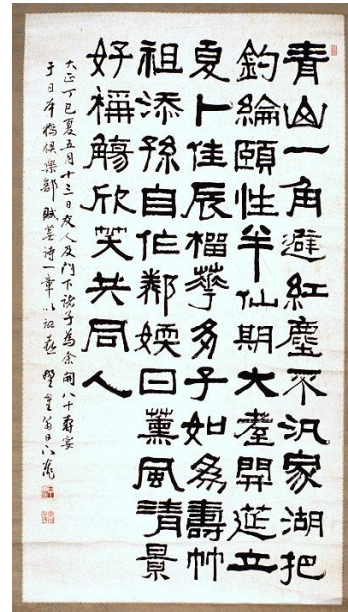 青山一角避紅塵不汎家湖把
釣綸頤性半仙期大耋開莚立
夏卜佳辰榴華多子如為壽竹
祖添孫自作鄰日薰風清景
好稱觴欣笑共同人
大正丁巳夏五月十三日友人及門下諸子為余開八十壽宴
于日本橋倶樂部賦蕪詩一章以記喜